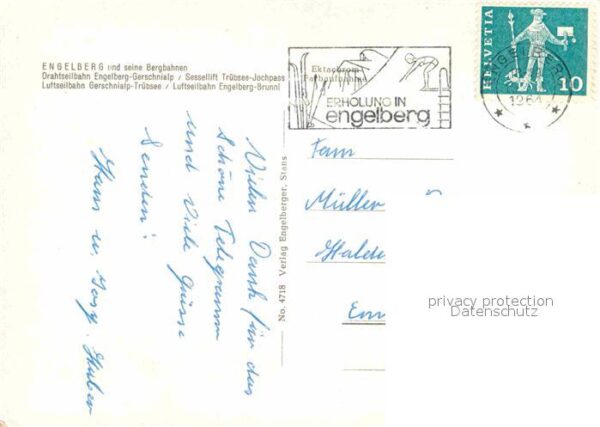 ENGELBERG und seine Bergbahnen
Drahtseilbahn Engelberg-Gerschnialp / Sessellift Trübsee-Jochpass
Luftseilbahn Gerschnialp-Trübsee / Luftseilbahn Engelberg-Brunni
Ektachrom
Farbaufnahme
ERHOLUNG IN
engelberg
HELVETIA
10
ENGELBERG
1964
Vielen Dank für das
schöne Telegramm
und viele Grüsse
senden:
Hans u. Josy. Huber
No. 4718 Verlag Engelberger, Stans
Fam
Müller
Halde
Em
privacy protection
Datenschutz